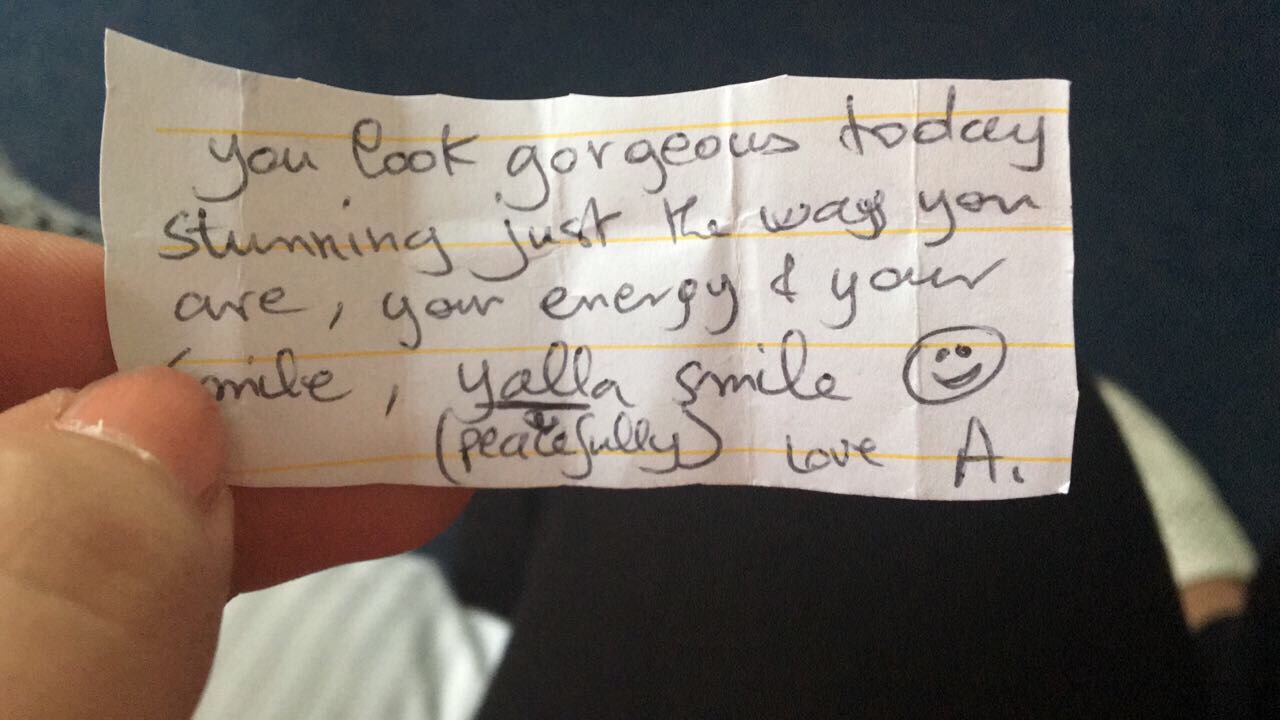 you look gorgeous today
stunning just the way you
are, your energy & your
smile, yalla smile
(peacefully) Love A.